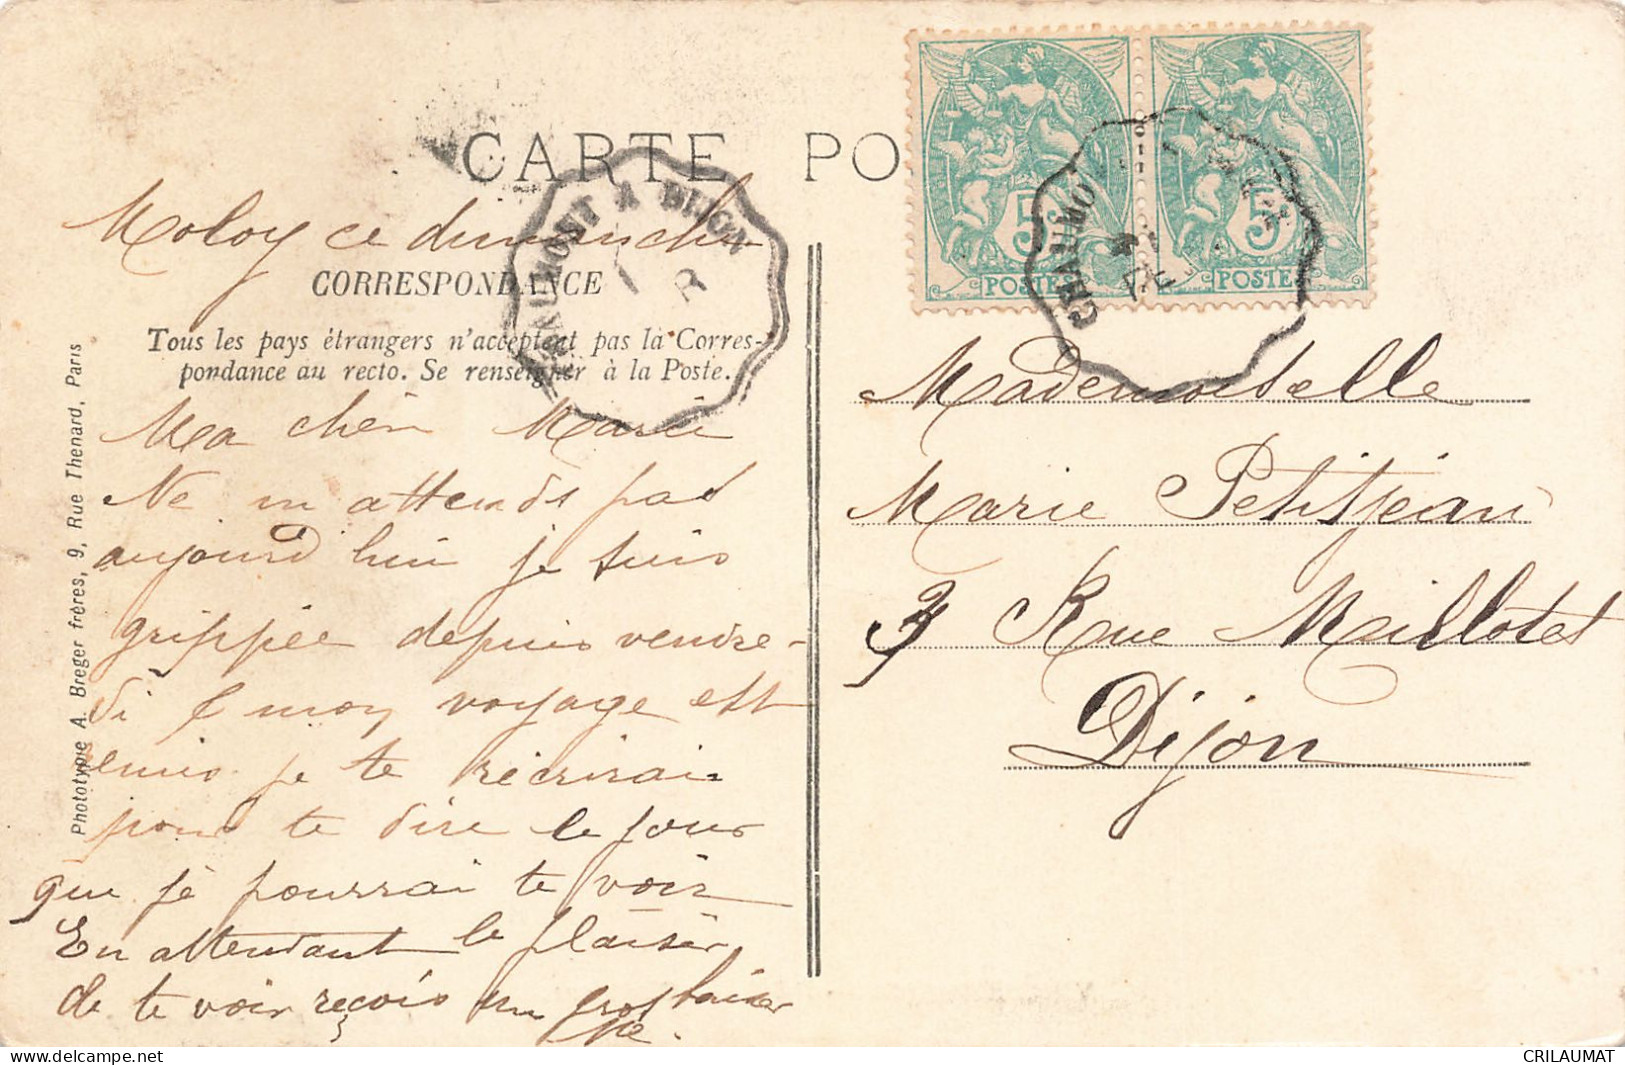 CARTE PO
Moloy ce dimanche
CORRESPONDANCE
Tous les pays étrangers n'acceptent pas la Corres-
pondance au recto. Se renseigner à la Poste.
Ma chèr Marie
Ne m attends pas
aujourd hui je suis
grippée depuis vendre-
di & mon voyage est
remis je te récrirai
pour te dire le jour
que je pourrai te voir
En attendant le plaisir
de te voir reçois un gros baiser
Phototypie A. Breger frères, 9, Rue Thenard, Paris
CHAUMONT A DIJON
5 POSTE
5 POSTE
CHAUMO
Mademoiselle
Marie Petitjean
3 Rue Millotet
Dijon
delcampe.net
CRILAUMAT